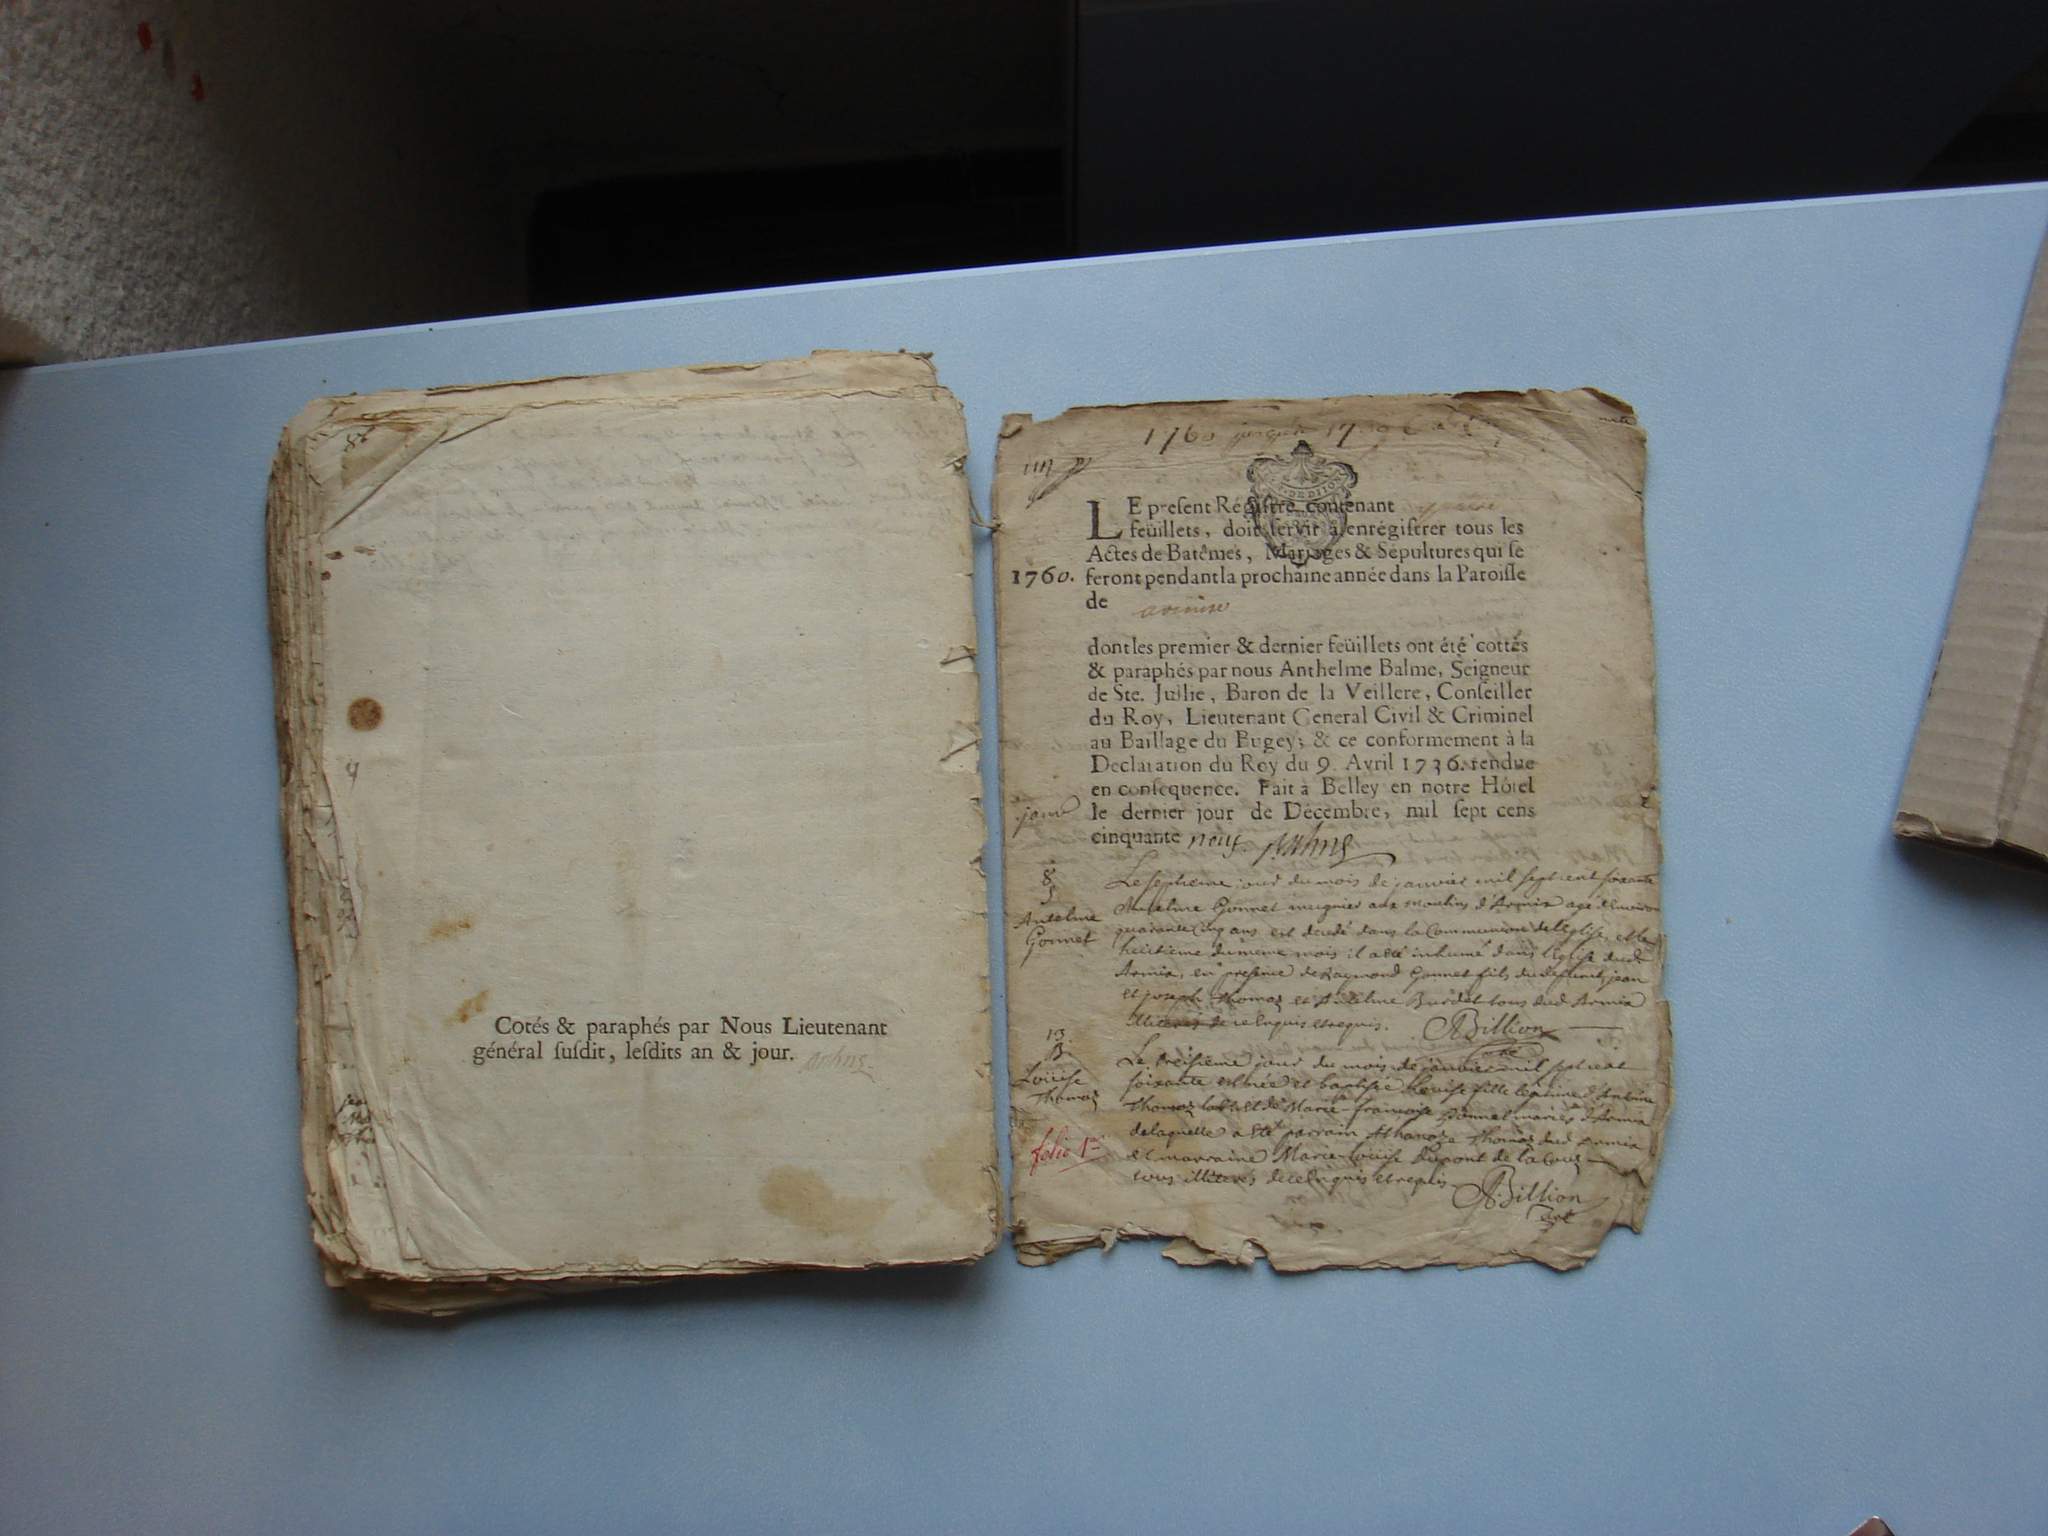 4
Cotés & paraphés par Nous Lieutenant
général ſuſdit, leſdits an & jour.
1760
LE preſent Régiſtre contenant
feüillets, doit ſervir à enrégiſtrer tous les
Actes de Batêmes, Mariages & Sépultures qui ſe
1760. feront pendant la prochaine année dans la Paroiſſe
de
dont les premier & dernier feüillets ont été cottés
& paraphés par nous Anthelme Balme, Seigneur
de Ste. Jullie, Baron de la Veillere, Conſeiller
du Roy, Lieutenant General Civil & Criminel
au Baillage du Bugey; & ce conformement à la
Declaration du Roy du 9. Avril 1736. rendue
en conſequence. Fait à Belley en notre Hôtel
le dernier jour de Décembre, mil ſept cens
cinquante neuf.
8
Antelme
Gonnet
Le septieme jour du mois de janvier mil sept cent soixante
Anselme Gonnet aux moulins d'Armix agé d'environ
quarante cinq ans est decedé dans la Communion de l'Eglise, et le
huitieme du meme mois il a été inhumé dans l'église dud.
Armix, en presence de Raymond Gonnet fils du deffunt, jean
et joseph Thomaz et Antelme Burdet tous dud Armix
de ce Enquis et requis. Billion
13
B.
Loüise
Thomaz
Le treisieme jour du mois de janvier mil sept cent
soixante est née et baptisée Louise fille legitime d'Antoine
Thomaz et de Marie françoise Gonnet mariés d'Armix
de laquelle a été parrain Thomaz dud Armix
et marraine Marie Loüise Dupont de la
tous illiterés de ce Enquis et requis. Billion
folio 1er